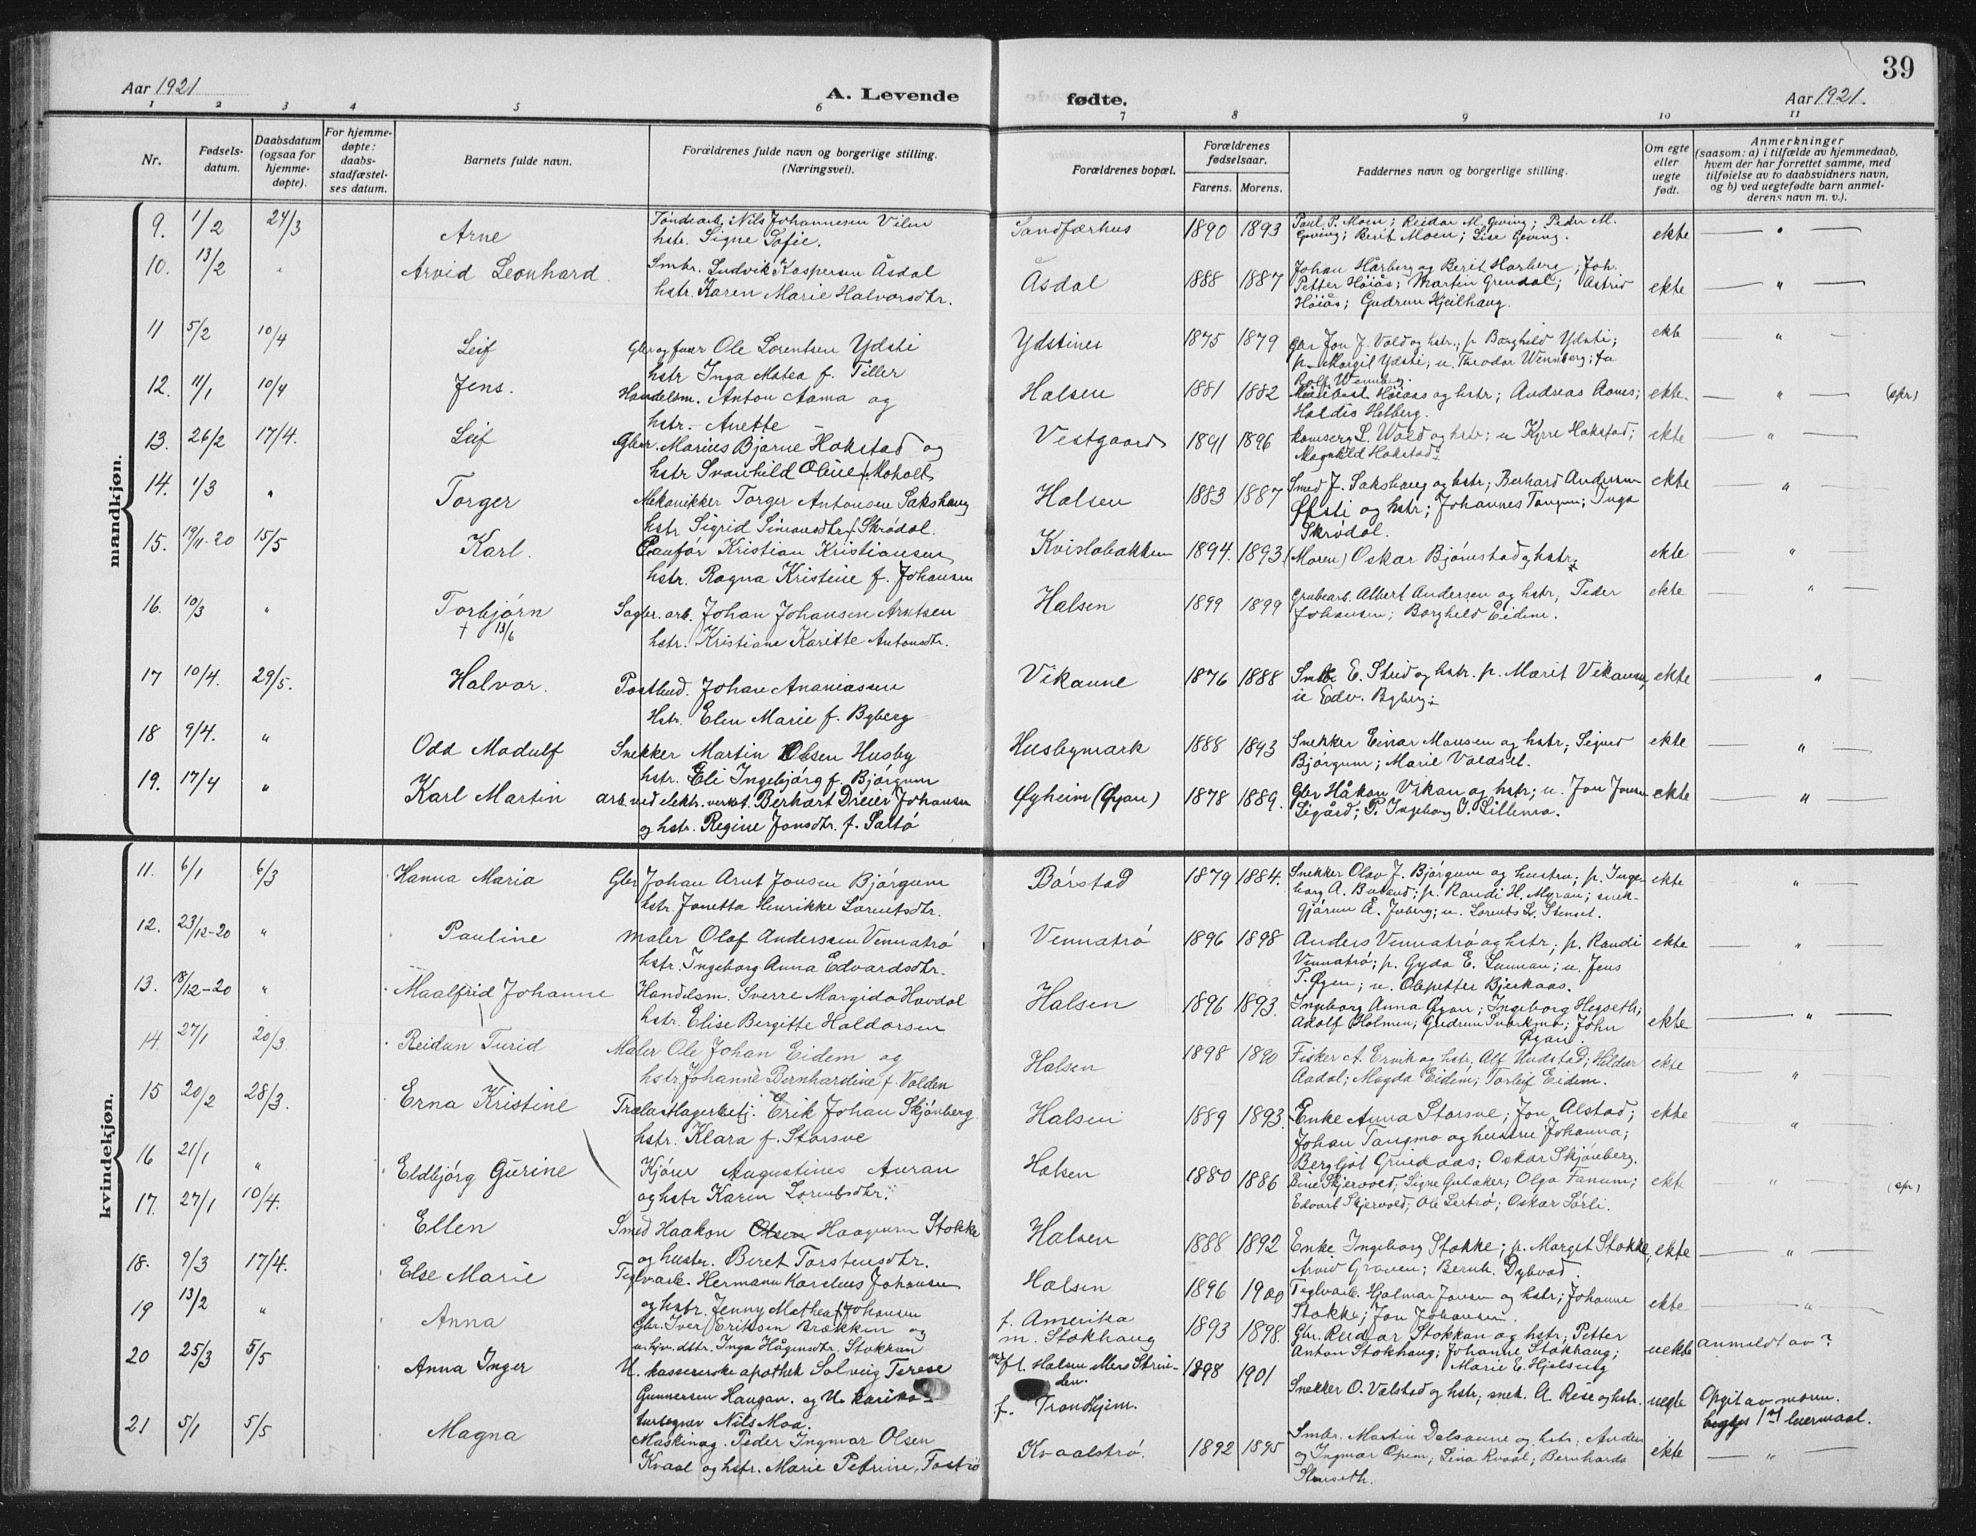 39
Aar 1921
A. Levende
fødte.
Aar 1921.
1 2 3 4 5 6 7 8 9 10 11
Nr.
Fødselsdatum.
Daabsdatum (ogsaa for hjemmedøpte).
For hjemmedøpte: daabsstadfæstelses datum.
Barnets fulde navn.
Forældrenes fulde navn og borgerlige stilling. (Næringsvei).
Forældrenes bopæl.
Forældrenes fødselsaar.
Farens. Morens.
Faddernes navn og borgerlige stilling.
Om egte eller uegte født.
Anmerkninger
(saasom: a) i tilfælde av hjemmedaab,
hvem der har forrettet samme, med
tilføielse av to daabsvidners navn,
og b) ved uegtefødte barn anmelderens navn m. v.).
mandkjøn.
9. 1/2 24/3 Arne Nils Johannesen Vilen Sandfærhus 1890 1893 Paul P. Moen; Reidar M. Geving; Peder M. ekte
hstr. Signe Sofie. Geving; Berit Moen; Lise Geving.
10. 13/2 " Arvid Leonhard Smbr. Ludvik Kaspersen Åsdal Åsdal 1888 1887 Johan Hårberg og Berit Harberg; Joh. ekte
hstr. Karen Marie Halvorsdtr. Petter Høiås; Martin Grendal; Astrid
Høiås; Gudrun Kjeilhaug.
11 5/2 10/4 Leif Ole Lorentsen Ydsti Ydstines 1875 1879 Gbr Jon J. Vold og hstr.; p. Borghild Ydsti; ekte
hstr Inga Matea f. Tiller p. Margit Ydsti; u. Theodor Wennberg; fa
Rolf Wennberg.
12. 11/1 10/4 Jens. Handelsm. Anton Aama og Halsen 1881 1882 Høiaas og hstr; Andreas Aames; ekte (spr)
hstr. Anette Haldis Helberg.
13. 26/2 17/4. Leif Gbr. Marius Bjarne Hokstad og Vestgaard 1891 1896 L. Wold og hstr; u Kyrre Hokstad; ekte
hstr Svanhild Oline f. Moholt Magnhild Hokstad
14. 1/3 " Torger Mekanikker Torger Antonsen Sakshaug Halsen 1883 1887 Smed J. Sakshaug og hstr; Berhard Andersen ekte
hstr Sigrid Simonsdtr f. Skrødal. Øfsti og hstr; Johannes Tangen; Inga
Skrødal.
15. 19/11-20 15/5 Karl. Kristian Kristiansen Kvislabakken 1894. 1893 (Moren) Oskar Bjørnstad og hstr; ekte
hstr. Ragna Kristine f. Johansen
16. 10/3 " Torbjørn Sagbr. arb. Johan Johansen Arntsen Halsen 1899 1899 Grubearb. Albert Andersen og hstr; Peder ekte
† 13/6 hstr. Kristiane Karitte Antonsdtr. Johansen; Borghild Eidem.
17 10/4. 29/5. Halvor. Postbud. Johan Ananiassen Vikanne 1876 1888 E. Stud og hstr. p. Marit Vikansen, ekte
Hstr. Elen Marie f. Byberg u Edv. Byberg
18 9/4. " Odd Modulf Snekker Martin Olsen Husby Husbymark 1888 1893 Snekker Einar Monsen og hstr; Signe ekte
hstr. Eli Ingebjørg f. Bjørgum Bjørgum; Marie Valdset.
19. 17/4 " Karl Martin arb. ved elektr. verket Berhart Dreier Johansen Øyheim (Øyan) 1878 1889. Gbr Håkon Vikan og hstr; u. Jon Jonsen ekte
og hstr. Regine Jonsdtr. f. Saltø Sigård; P. Ingeborg J. Lillemo.
kvindekjøn.
11. 6/1 6/3 Hanna Maria Gbr Johan Arnt Jonsen Bjørgum Børstad 1879 1884. Snekker Olav J. Bjørgum og hustru; p. Ingeborg A. ; p. Randi H. Myran; ekte
hstr Jonetta Henrikke Lorentsdtr. u. Lorents L. Stenset.
12. 23/12-20 " Pauline Maler Olaf Anderssen Vennatrø Vennatrø 1896 1898 Anders Vennatrø og hstr; p. Randi ekte
hstr. Ingeborg Anna Edvardsdtr. Vennatrø; p. Gyda E. Sunnan; u. Jens
P. Øyen; u. Olepetter Bjerkaas.
13. 18/12-20 " Maalfrid Johanne Handelsm. Sverre Margido Havdal Halsen 1896 1893. Ingeborg Anna Øyan; Ingeborg Hegseth; ekte
hstr. Elise Bergitte Haldorsen Adolf Holmen; Gudrun Svarkmo; John
Øyan.
14. 27/1 20/3 Reidun Turid Maler Ole Johan Eidem og Halsen 1898 1890 Fisker A. Ervik og hstr, Alf Hudstad; Hildor ekte
hstr Johanne Bernhardine f. Volden Aadal; Magda Eidem; Torleif Eidem.
15 20/2 28/3. Erna Kristine Trælastlagerbetj. Erik Johan Skjønberg Halsen 1889 1893. Enke Anna Storsve; Jon Alstad; ekte
hstr. Klara f. Storsve Johan Tangmo og hustru Johanna;
Bergljot ; Oskar Skjønberg.
16 21/1 " Eldbjørg Gurine Augustines Auran Halsen 1880 1886 Skjervold; Signe ; Olga Fanum; ekte (spr.)
og hstr Karen Lorentsdtr; Edvart Skjervold; Ole Lertrø; Oskar Sørli.
17. 27/1 10/4. Ellen Smed Haakon Olsen Haagnum Stokke Halsen 1888 1892 Enke Ingeborg Stokke; p. Margit Stokke, ekte
og hustr. Beret Torstensdtr. Arvid Graven; Bernh. Dybvad.
18. 9/3 17/4. Else Marie Teglvarb. Hermann Karelius Johansen Halsen 1896 1900 Teglvarb. Hjalmar Jonsen og hstr; Johanne ekte
og hstr. Jenny Mathea f. Johansen Stokke; Jon Johansen.
19 13/2 " Anna Gbr. Iver Eriksen Brækken og f. Amerika 1893 1898. Gbr. Reidar Stokkan og hstr; Petter uekte anmeldt av?
Inga Hågensdtr. Stokkan m. Stokhaug Anton Stokhaug; Johanne Stokhaug;
Marie E. Hjelseng
20 25/3 5/5 Anna Inger U. kassererske apothek Solveig Terese Halsen Mers Strinden. 1898 1901 Snekker O. Valstad og hstr; snek. A. Rese og hstr. uegte Opgit av moren.
Gunnersen Haugan. og U karikaturtegner Nils Moa. f. Trondhjem. begges 1ste leiermaal.
21 5/1 5/5 Magna Maskinag. Peder Ingmar Olsen Kvaalstrø. 1892 1895 Smbr. Martin Dalsaune og hstr; Anders ekte
Kvaal og hstr. Marie Petrine, og Ingmar Opem; Lina Kvaal; Bernharda
Stenseth.